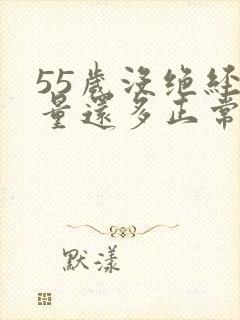 55岁没绝经
量还多正常
默漾